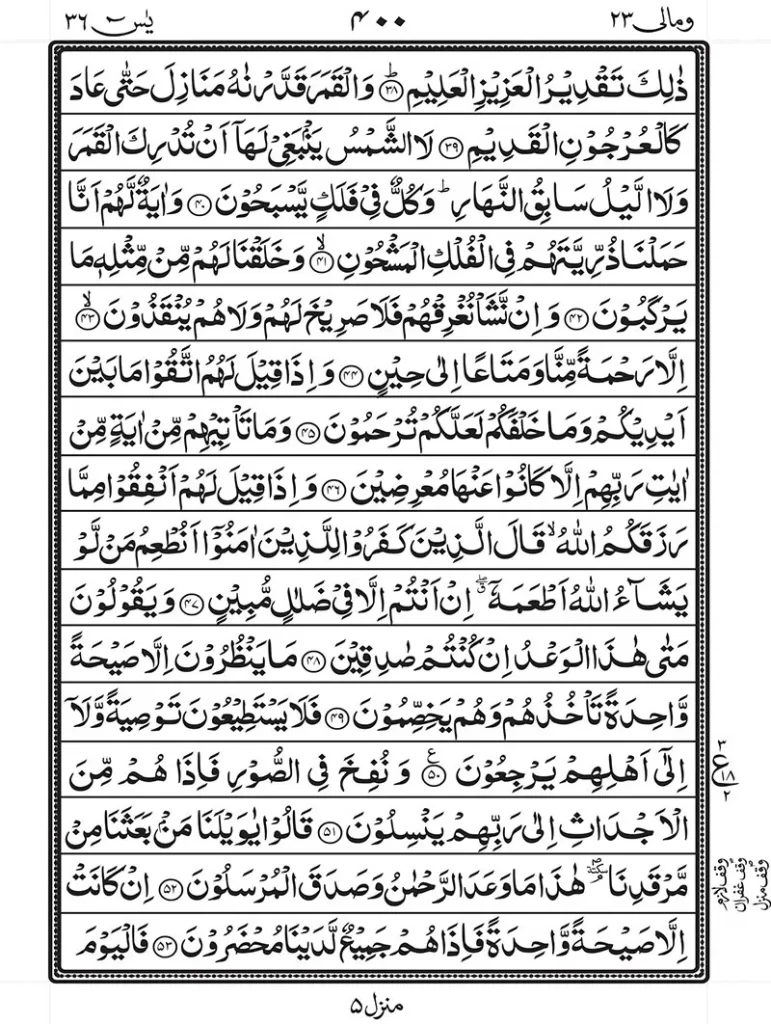 ومالی ۲۳
۴۰۰
یٰسٓ ۳۶
ذٰلِكَ تَقْدِيْرُ الْعَزِيْزِ الْعَلِيْمِ ؕ﴿۳۸﴾ وَالْقَمَرَ قَدَّرْنٰهُ مَنَازِلَ حَتّٰى عَادَ
كَالْعُرْجُوْنِ الْقَدِيْمِ ﴿۳۹﴾ لَا الشَّمْسُ يَنْۢبَغِيْ لَهَاۤ اَنْ تُدْرِكَ الْقَمَرَ
وَلَا الَّيْلُ سَابِقُ النَّهَارِ ؕ وَكُلٌّ فِيْ فَلَكٍ يَّسْبَحُوْنَ ﴿۴۰﴾ وَاٰيَةٌ لَّهُمْ اَنَّا
حَمَلْنَا ذُرِّيَّتَهُمْ فِي الْفُلْكِ الْمَشْحُوْنِ ۙ﴿۴۱﴾ وَخَلَقْنَا لَهُمْ مِّنْ مِّثْلِهٖ مَا
يَرْكَبُوْنَ ﴿۴۲﴾ وَاِنْ نَّشَاْ نُغْرِقْهُمْ فَلَا صَرِيْخَ لَهُمْ وَلَا هُمْ يُنْقَذُوْنَ ۙ﴿۴۳﴾
اِلَّا رَحْمَةً مِّنَّا وَمَتَاعًا اِلٰى حِيْنٍ ﴿۴۴﴾ وَاِذَا قِيْلَ لَهُمُ اتَّقُوْا مَا بَيْنَ
اَيْدِيْكُمْ وَمَا خَلْفَكُمْ لَعَلَّكُمْ تُرْحَمُوْنَ ﴿۴۵﴾ وَمَا تَاْتِيْهِمْ مِّنْ اٰيَةٍ مِّنْ
اٰيٰتِ رَبِّهِمْ اِلَّا كَانُوْا عَنْهَا مُعْرِضِيْنَ ﴿۴۶﴾ وَاِذَا قِيْلَ لَهُمْ اَنْفِقُوْا مِمَّا
رَزَقَكُمُ اللّٰهُ ۙ قَالَ الَّذِيْنَ كَفَرُوْا لِلَّذِيْنَ اٰمَنُوْۤا اَنُطْعِمُ مَنْ لَّوْ
يَشَآءُ اللّٰهُ اَطْعَمَهٗۤ ۖ اِنْ اَنْتُمْ اِلَّا فِيْ ضَلٰلٍ مُّبِيْنٍ ﴿۴۷﴾ وَيَقُوْلُوْنَ
مَتٰى هٰذَا الْوَعْدُ اِنْ كُنْتُمْ صٰدِقِيْنَ ﴿۴۸﴾ مَا يَنْظُرُوْنَ اِلَّا صَيْحَةً
وَّاحِدَةً تَاْخُذُهُمْ وَهُمْ يَخِصِّمُوْنَ ﴿۴۹﴾ فَلَا يَسْتَطِيْعُوْنَ تَوْصِيَةً وَّلَاۤ
اِلٰۤى اَهْلِهِمْ يَرْجِعُوْنَ ﴿۵۰﴾ع وَنُفِخَ فِي الصُّوْرِ فَاِذَا هُمْ مِّنَ
۳
ع ۱۸
۲
الْاَجْدَاثِ اِلٰى رَبِّهِمْ يَنْسِلُوْنَ ﴿۵۱﴾ قَالُوْا يٰوَيْلَنَا مَنْۢ بَعَثَنَا مِنْ
مَّرْقَدِنَا ۘ هٰذَا مَا وَعَدَ الرَّحْمٰنُ وَصَدَقَ الْمُرْسَلُوْنَ ﴿۵۲﴾ اِنْ كَانَتْ
وقف لازم
وقف غفران
وقف منزل
اِلَّا صَيْحَةً وَّاحِدَةً فَاِذَا هُمْ جَمِيْعٌ لَّدَيْنَا مُحْضَرُوْنَ ﴿۵۳﴾ فَالْيَوْمَ
منزل ۵